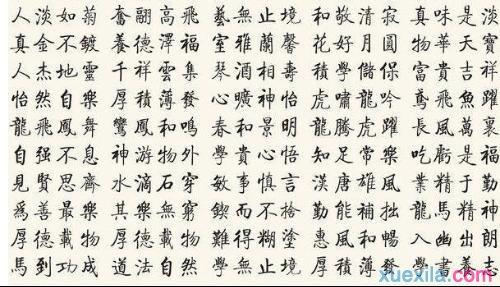 人淡如菊 奮翮高飛 藝無止境 和敬清寂 真味是淡
真金不鍍 養德澤福 室雅蘭馨 花好月圓 物華天寶
人杰地靈 千祥雲集 琴酒相壽 積學儲保 富貴吉祥
怡然自樂 厚積薄發 心曠神怡 虎嘯龍吟 鳶飛魚躍
龍飛鳳舞 鸞鳳和鳴 春和景明 龍騰虎躍 長風萬裏
自强不息 神游物外 學貴心悟 知足常樂 吃虧是福
見賢思齊 水滴石穿 敏事慎言 漢唐雄風 業精于勤
爲善最樂 其樂無窮 鍥而不捨 勤能補拙 龍馬精神
厚德載物 厚德載物 難得糊塗 惠風和暢 入幽出朗
馬到功成 道法自然 學無止境 厚積薄發 學書養志
xuexila.com